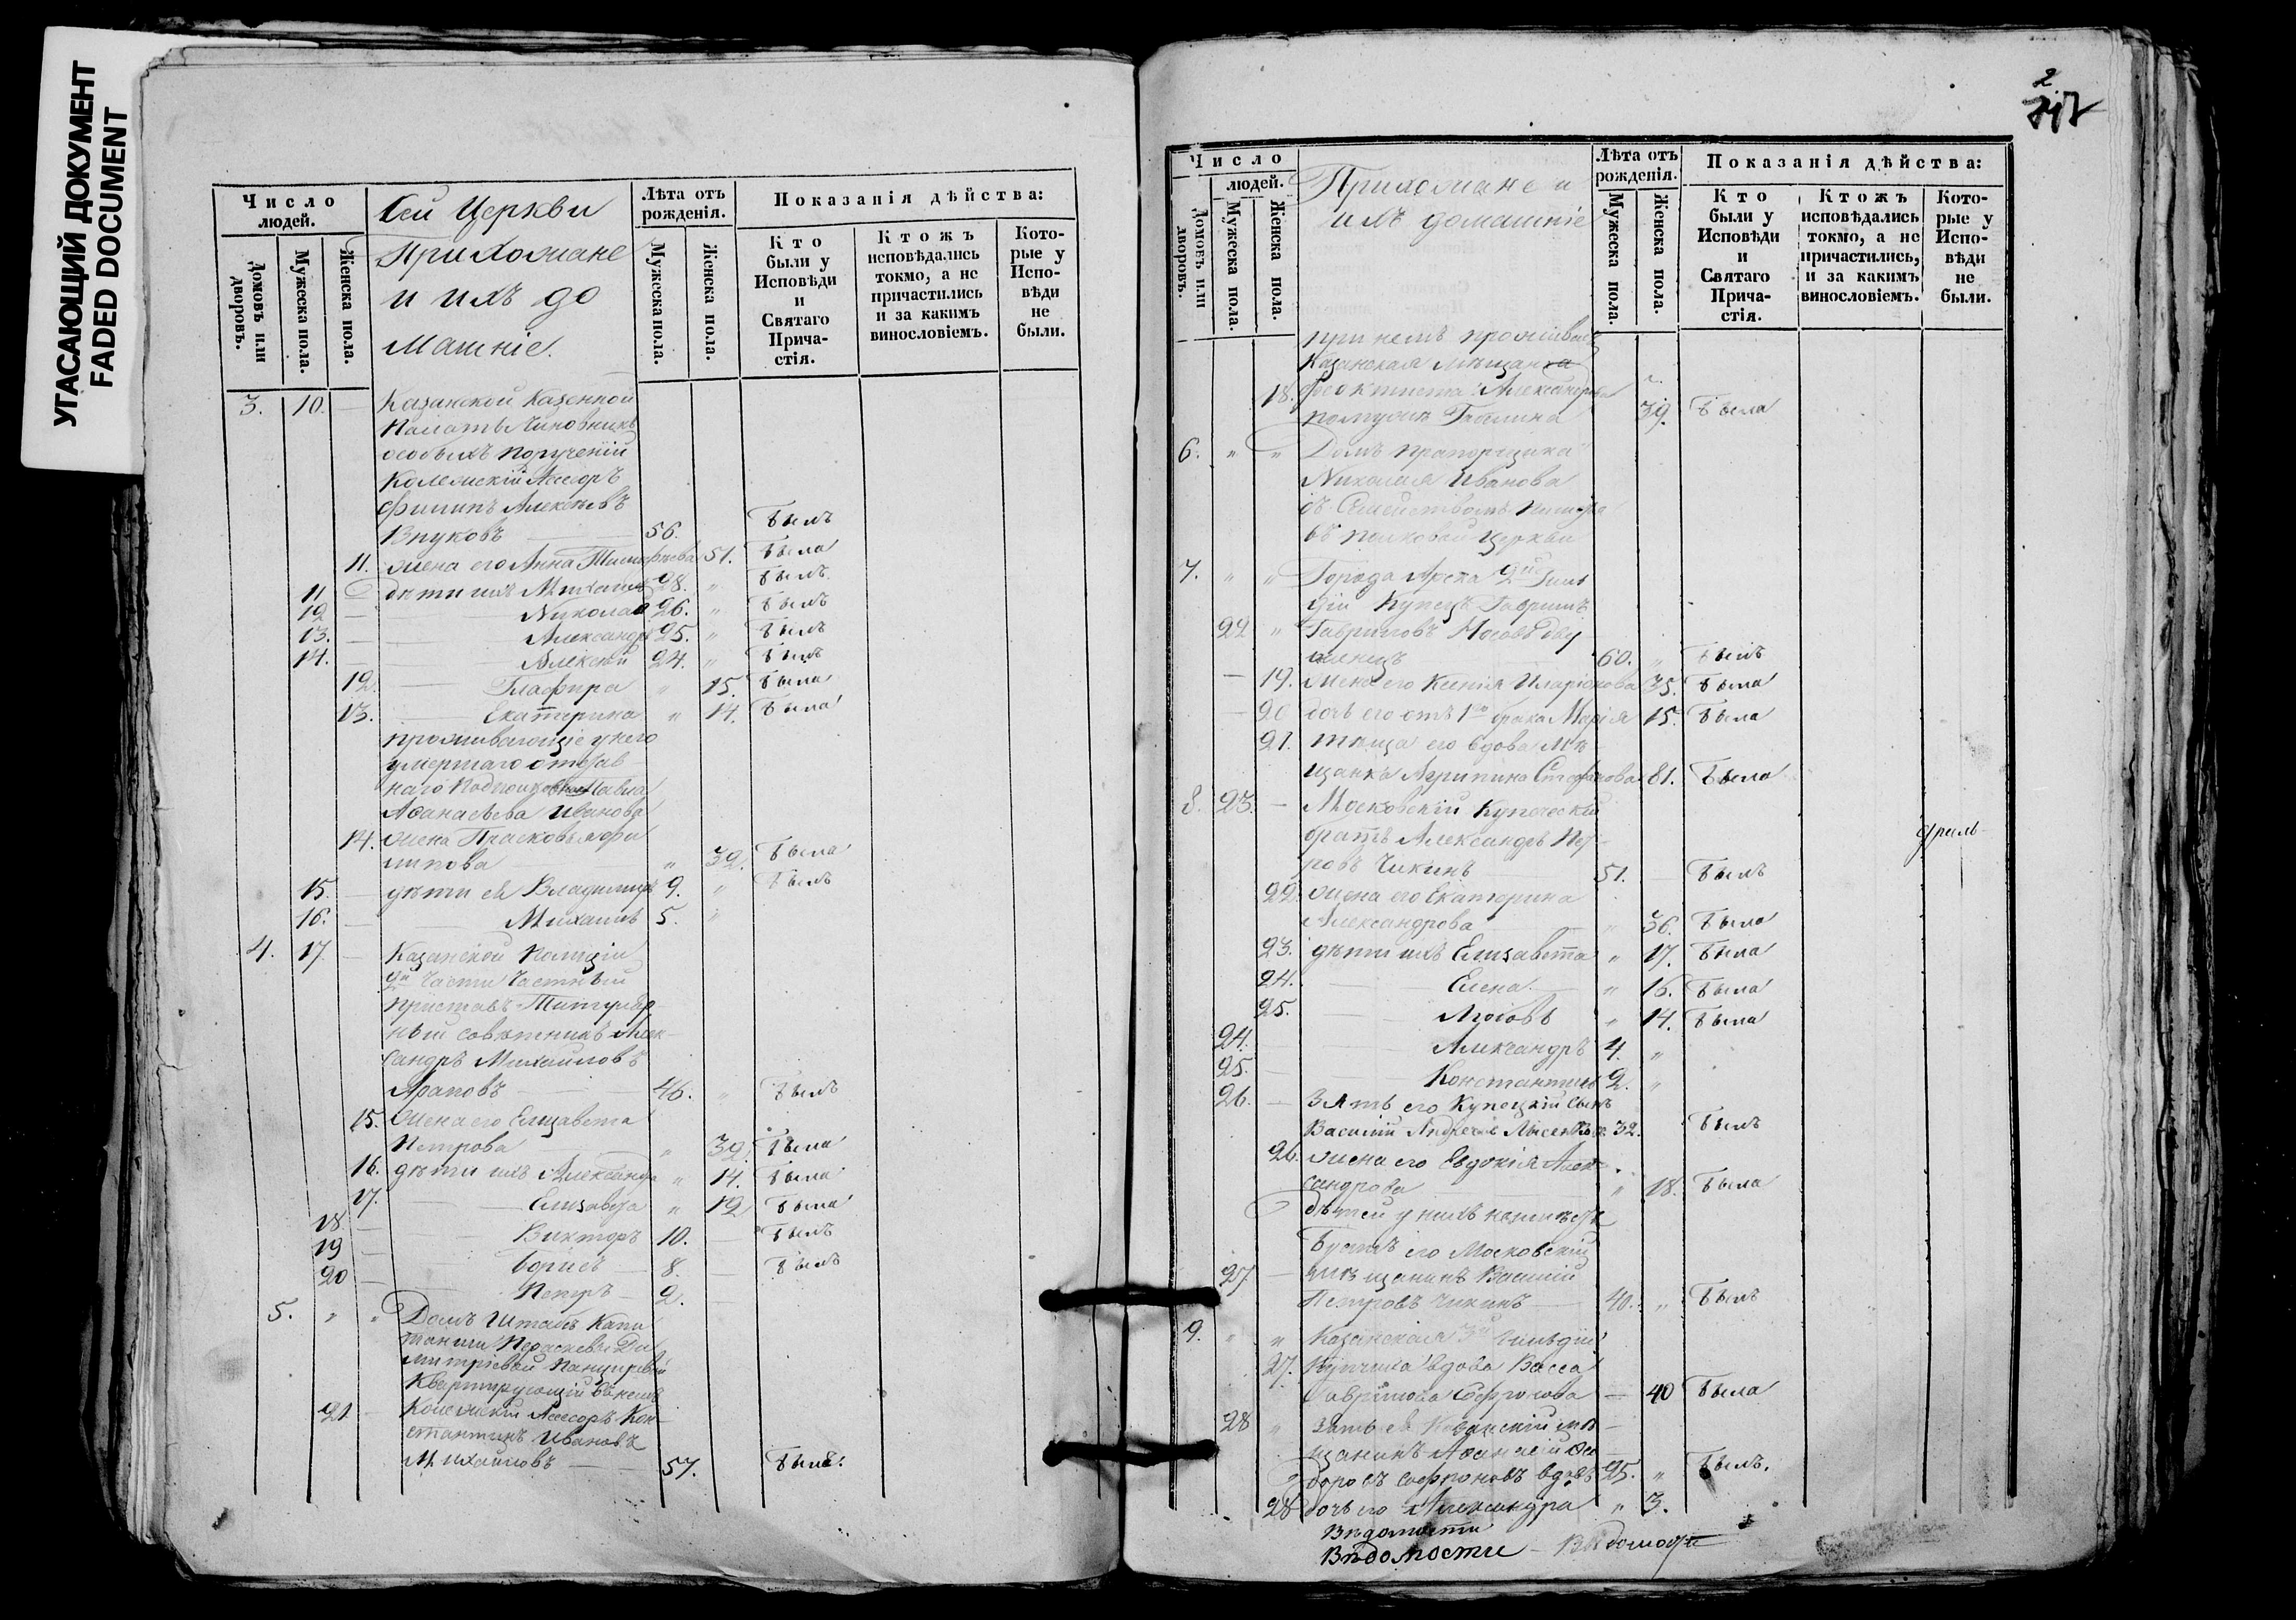 УГАСАЮЩИЙ ДОКУМЕНТ
FADED DOCUMENT
Число людей.
Домовъ или дворовъ.
Мужеска пола.
Женска пола.
Сей Церкви
Прихожане
и ихъ до
машніе.
Лѣта отъ рожденія.
Мужеска пола.
Женска пола.
Показанія дѣйства:
Кто были у Исповѣди и Святаго Прича-стія.
Ктожъ исповѣдались токмо, а не причастились и за какимъ винословіемъ.
Кото-рые у Испо-вѣди не были.
3. 10. Казанской Казенной
Палаты Чиновникъ
особыхъ порученій
Колежскій Асесоръ
Филипъ Алексѣевъ
Внуковъ 56. былъ
11. жена его Анна Тимофѣева 51. была
11 дѣти ихъ Михаилъ 28. " былъ
12 Николай 26. " былъ
13. Александръ 25. " былъ
14. Алексѣй 24. " былъ
12. Глафира " 15. была
13. Екатерина " 14. была
проживающіе у него
умершаго отстав
наго Подпоручика Павла
Афанасьева Иванова
14. жена Прасковья Фи
липова " 32. была
15. дѣти ея Владимиръ 9. " былъ
16. Михаилъ 5. "
4. 17. Казанской Полиціи
2й Части Частный
Приставъ Титуляр
ный совѣтникъ Алек
сандръ Михайловъ
Араповъ 46. " былъ
15. Жена его Елизавета
Петрова " 32. была
16. дѣти ихъ Александра " 14. была
17. Елизавета " 12 была
18 Викторъ 10. былъ
19 Борисъ 8. былъ
20 Петръ 2.
5. " " Домъ Штабъ Капи
танши Параскевы Ди
митріевой
Квартирующій въ немъ
21 Колежскій Асесоръ Кон
стантинъ Ивановъ
Михайловъ 57. былъ.
2
Число людей.
Домовъ или дворовъ.
Мужеска пола.
Женска пола.
Прихожане и
ихъ домашніе
Лѣта отъ рожденія.
Мужеска пола.
Женска пола.
Показанія дѣйства:
Кто были у Исповѣди и Святаго Прича-стія.
Ктожъ исповѣдались токмо, а не причастились, и за какимъ винословіемъ.
Кото-рые у Испо-вѣди не были.
при немъ прожив
Казанская мѣщанка
18. Феоктиста Александрова
39. была
6. " " Домъ прапорщика
Николая Иванова
съ Семействомъ
въ полковой церкви
7. " " Города Арска 2й Гиль
діи Купецъ Гаврилъ
22 " Гавриловъ Носовъ дву
женецъ 60. " былъ
19. Жена его Ксенія Иларіонова 35. была
20 дочь его отъ 1го брака Марія 15. была
21. теща его вдова Мѣ
щанка Агрипина Стефанова 81. была
8. 23. Московскій Купеческій
братъ Александръ Пет
ровъ Чикинъ 51. былъ
22. жена его Екатерина
Александрова " 36. была
23. дѣти ихъ Елизавета " 17. была
24. Елена " 16. была
25. Любовь " 14. была
24. Александръ 4. "
25. Константинъ 2. "
26. Зять его Купецкій сынъ
Василій Андреевъ 32. былъ
26. жена его Евдокія Алек
сандрова " 18. была
дѣтей у нихъ не имѣется
Братъ его Московскій
27 мѣщанинъ Василій
Петровъ Чикинъ 40. " былъ
9. " " Казанская 3й Гильдіи
27. Купчиха вдова Васса
Гаврилова Софронова 40 была
28 " Зять ея Казанскій мѣ
щанинъ Афанасій Фео
доровъ Софроновъ вдовъ 25. " былъ.
28 дочь его Александра " 3.
Вѣдомости
Вѣдомости — Вѣдомости